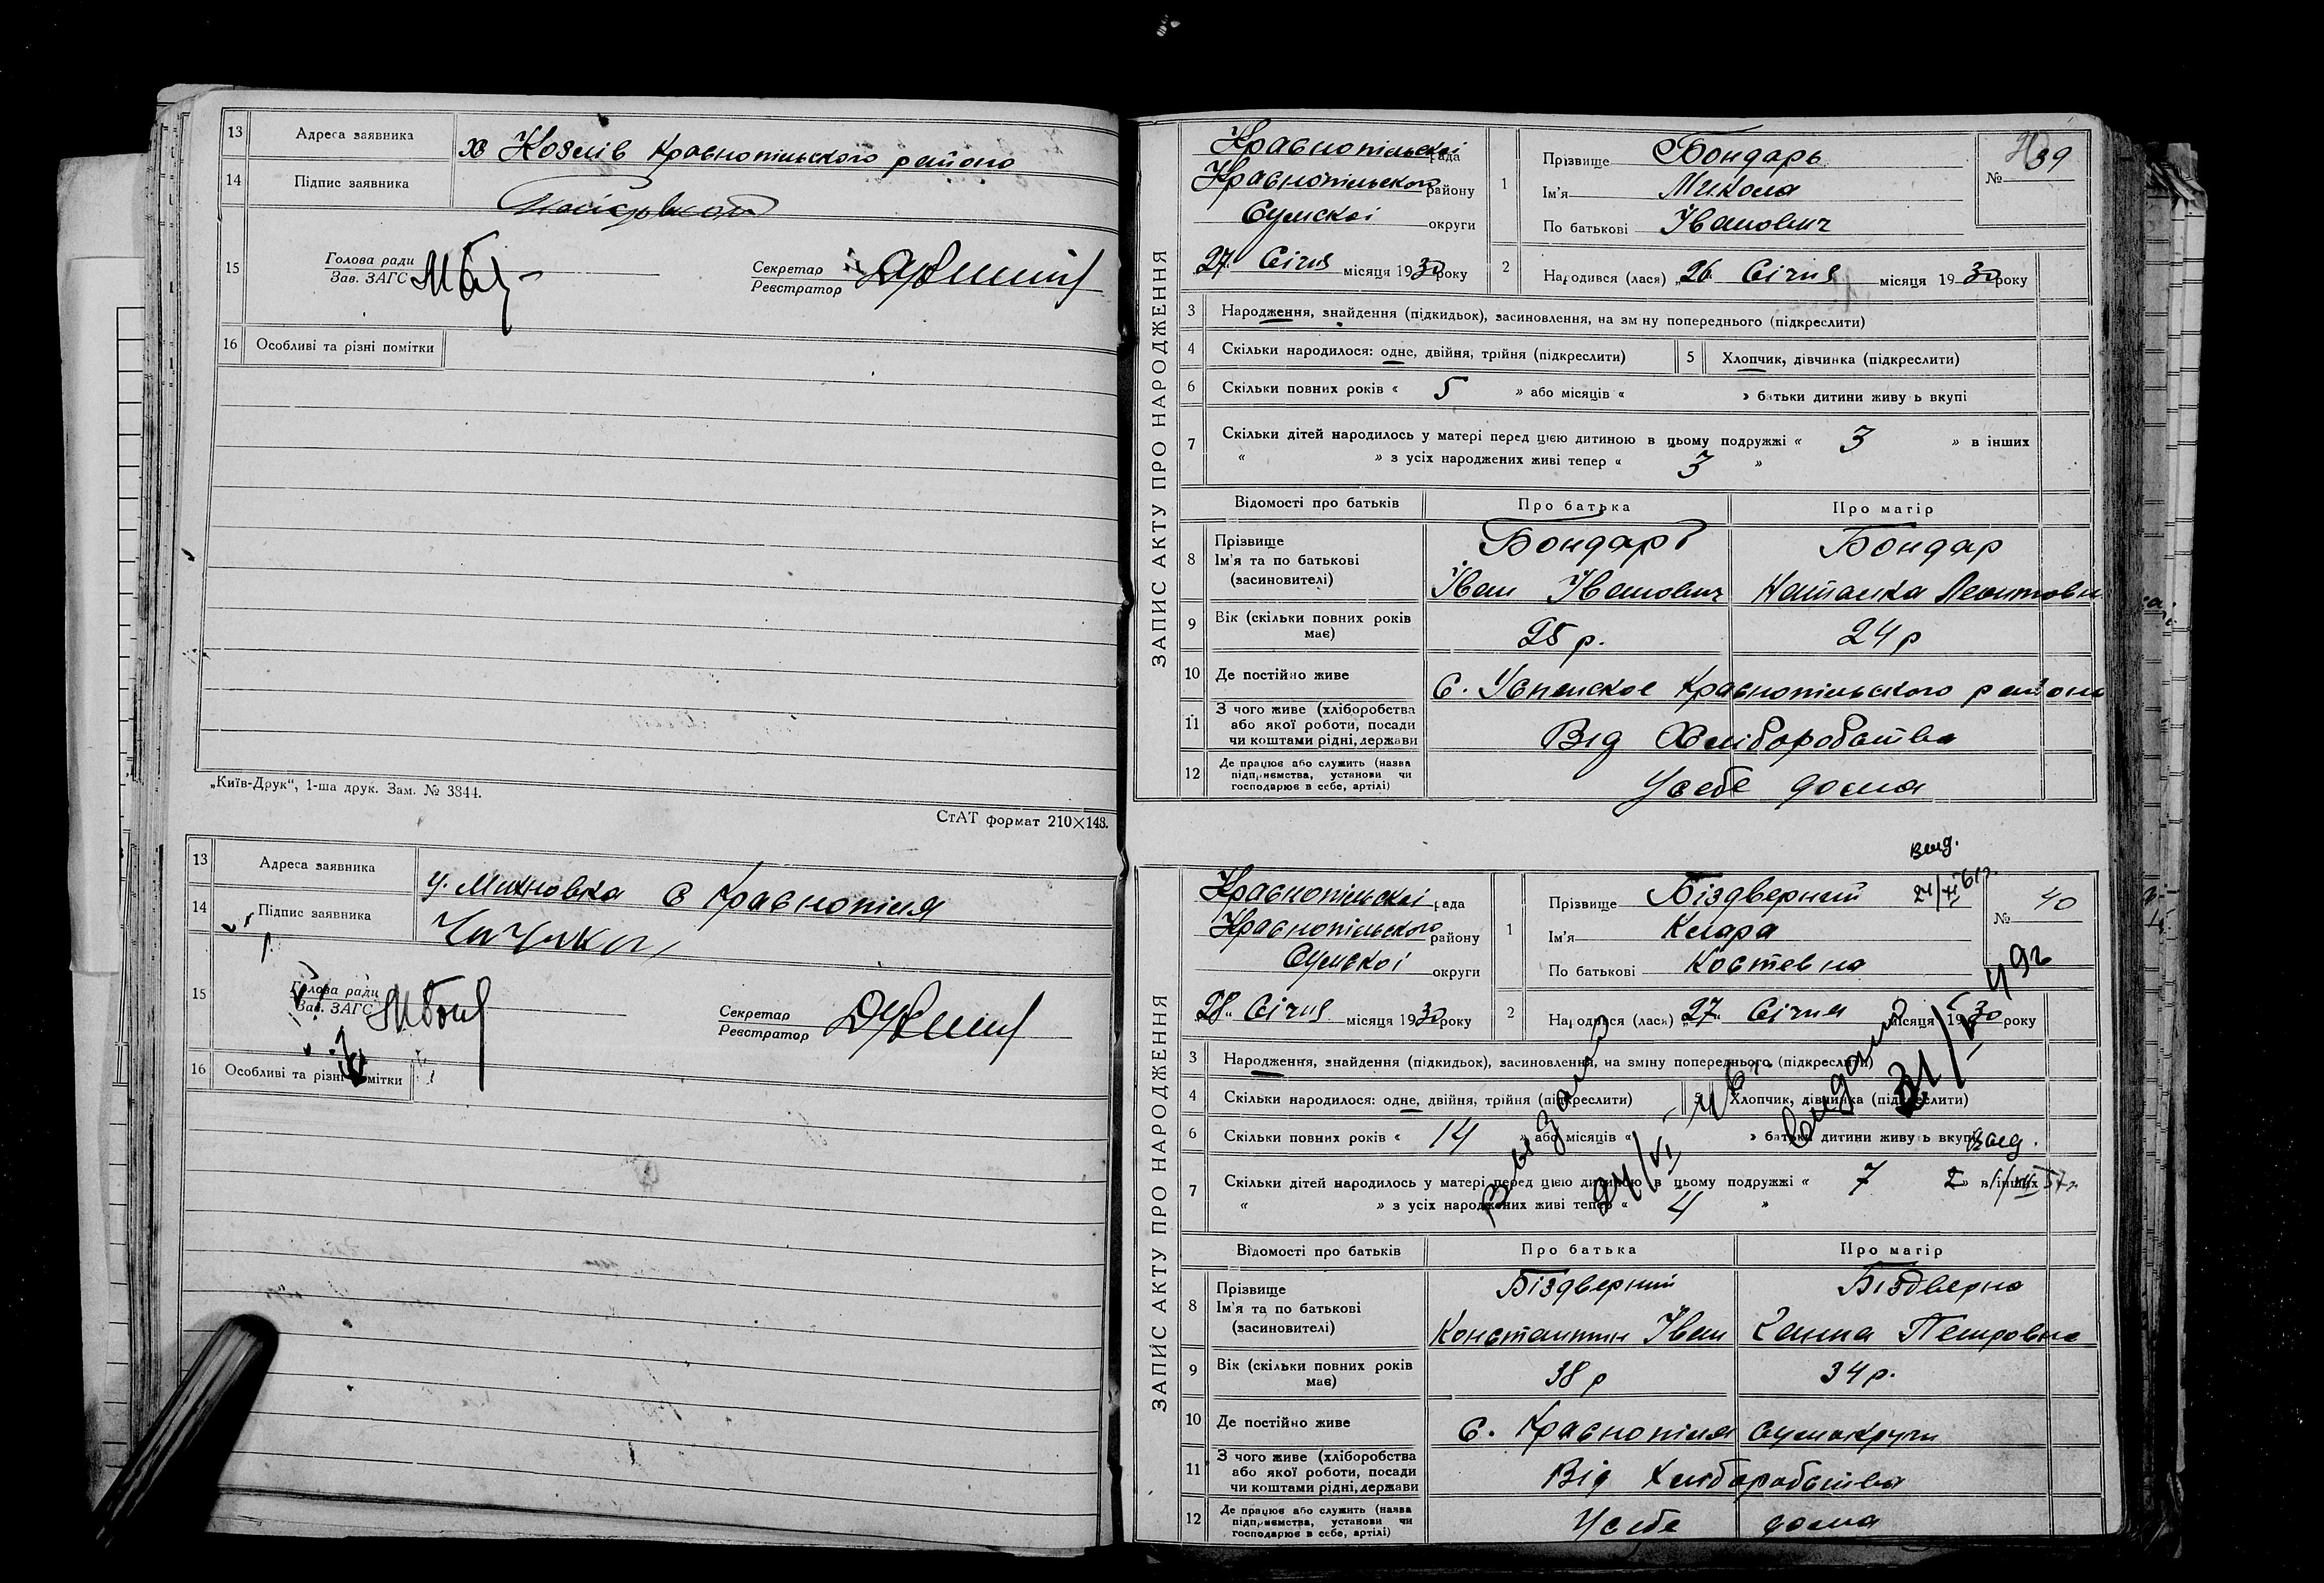 13 Адреса заявника х Козлів Краснопільского района
14 Підпис заявника
15 Голова ради
Зав. ЗАГС
Секретар
Реєстратор
16 Особливі та різні помітки
„Київ-Друк“, 1-ша друк. Зам. № 3344.
СтАТ формат 210×148.
13 Адреса заявника
с Краснопілля
14 Підпис заявника
15 Голова ради
Зав. ЗАГС
Секретар
Реєстратор
16 Особливі та різні помітки
ЗАПИС АКТУ ПРО НАРОДЖЕННЯ
Краснопільскої рада
Краснопільского району
Сумскої округи
27 Січня місяця 1930 року
1 Прізвище Бондарь
Ім'я Микола
По батькові Іванович
№ 39
2 Народився (лася) „26 Січня місяця 1930 року
3 Народження, знайдення (підкидьок), засиновлення, на зміну попереднього (підкреслити)
4 Скільки народилося: одне, двійня, трійня (підкреслити) 5 Хлопчик, дівчинка (підкреслити)
6 Скільки повних років « 5 » або місяців « » батьки дитини живуть вкупі
7 Скільки дітей народилось у матері перед цією дитиною в цьому подружжі « 3 » в інших
« » з усіх народжених живі тепер « 3 »
Відомості про батьків Про батька Про матір
8 Прізвище
Ім'я та по батькові
(засиновителі)
Бондарь Бондар
Іван Іванович Наталка
9 Вік (скільки повних років має) 25 р. 24 р
10 Де постійно живе С. Успенское Краснопільского района
11 З чого живе (хліборобства
або якої роботи, посади
чи коштами рідні, держави
Від Хліборобства
12 Де працює або служить (назва
підприємства, установи чи
господарює в себе, артілі)
У себе дома
ЗАПИС АКТУ ПРО НАРОДЖЕННЯ
Краснопільскої рада
Краснопільского району
Сумскої округи
28 Січня місяця 1930 року
1 Прізвище Біздверний
Ім'я Клара
По батькові Костевна
№ 40
2 Народився (лася) „27 Січня місяця 1930 року
3 Народження, знайдення (підкидьок), засиновлення, на зміну попереднього (підкреслити)
4 Скільки народилося: одне, двійня, трійня (підкреслити) 5 Хлопчик, дівчинка (підкреслити)
6 Скільки повних років « 14 » або місяців « » батьки дитини живуть вкупі
7 Скільки дітей народилось у матері перед цією дитиною в цьому подружжі « 7 » в інших
« » з усіх народжених живі тепер « 4 »
Відомості про батьків Про батька Про матір
8 Прізвище
Ім'я та по батькові
(засиновителі)
Біздверний Біздверна
Константин Іван Ганна Петровна
9 Вік (скільки повних років має) 38 р 34 р.
10 Де постійно живе С. Краснопілля Сумокруги
11 З чого живе (хліборобства
або якої роботи, посади
чи коштами рідні, держави
Від Хліборобства
12 Де працює або служить (назва
підприємства, установи чи
господарює в себе, артілі)
У себе дома